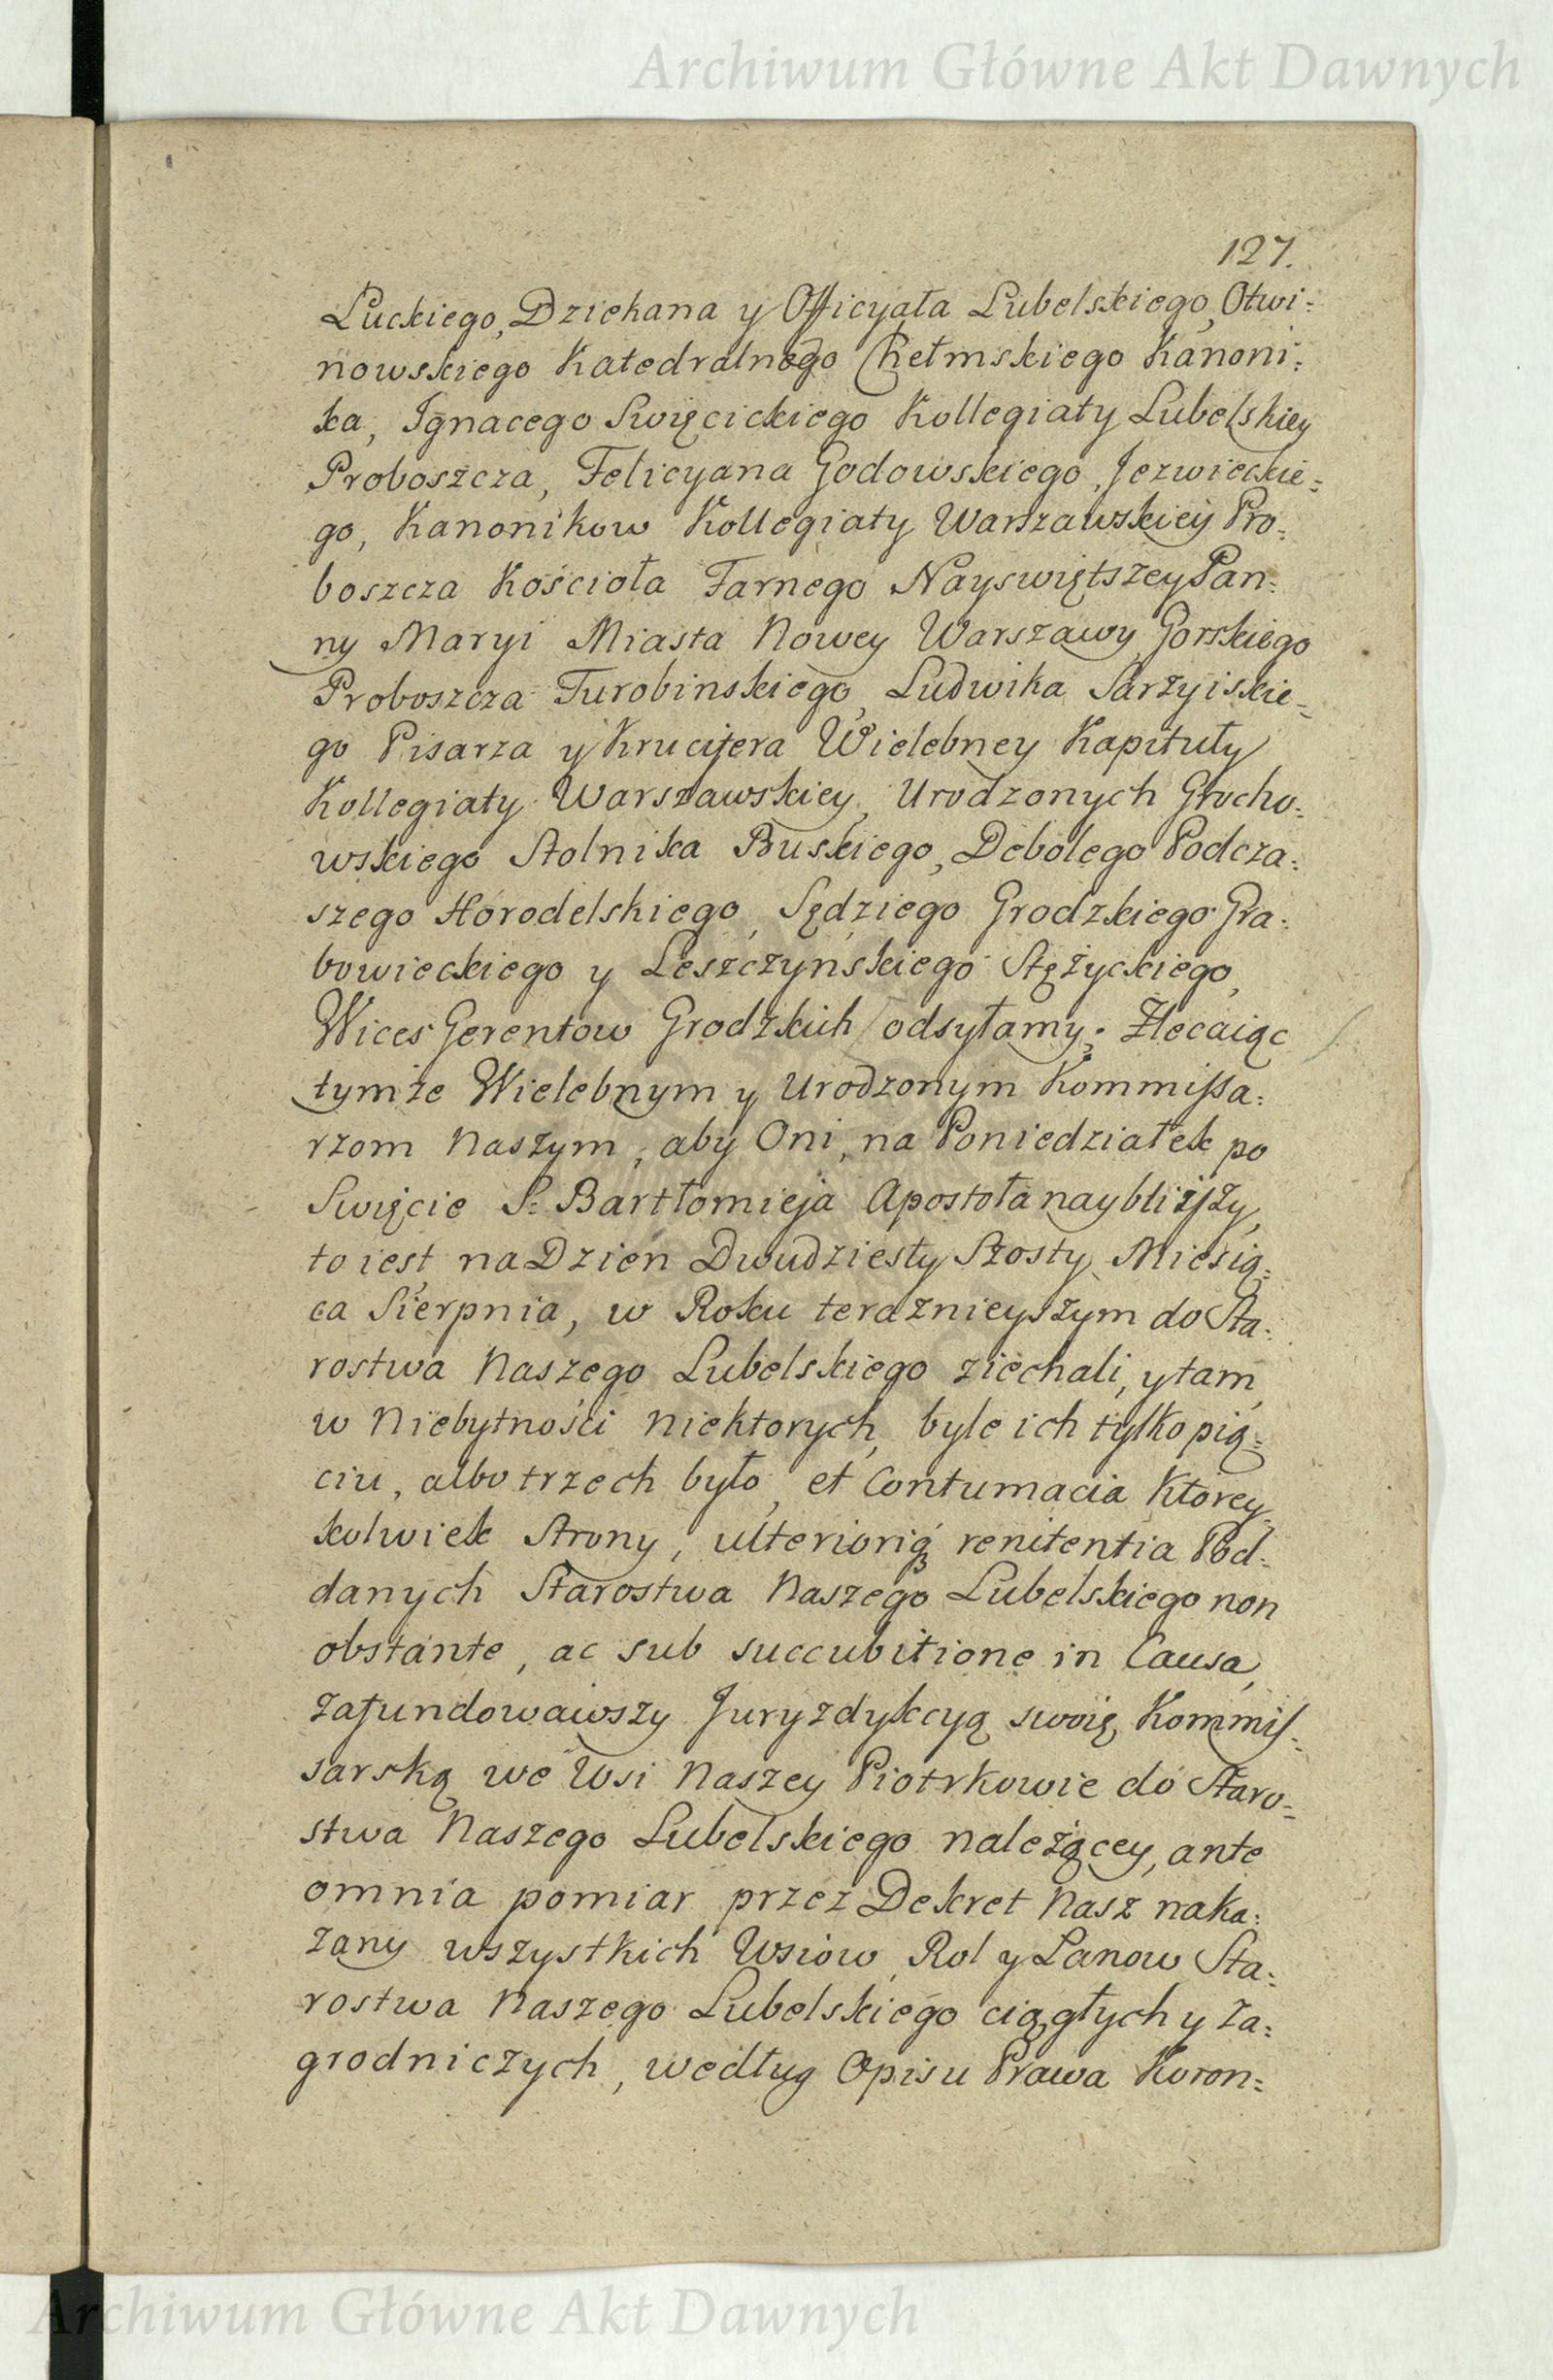 Archiwum Główne Akt Dawnych
127.
Łuckiego, Dziekana y Officyała Lubelskiego, Otwi=
nowskiego Katedralnego Chełmskiego Kanoni=
ka, Ignacego Swięcickiego Kollegiaty Lubelskiey
Proboszcza, Felicyana Godowskiego, Jezwieckie=
go, Kanonikow Kollegiaty Warszawskiey Pro=
boszcza Kościoła Farnego Nayswiętszey Pan=
ny Maryi Miasta Nowey Warszawy, Gorskiego
Proboszcza Turobinskiego, Ludwika Sarzyiskie=
go Pisarza y Krucifera Wielebney Kapituły
Kollegiaty Warszawskiey, Urodzonych Grocho=
wskiego Stolnika Buskiego, Debolego Podcza=
szego Horodelskiego, Sędziego Grodzkiego Gra=
bowieckiego y Leszczyńskiego Stężyckiego,
Wices Gerentow Grodzkich odsyłamy; Zlecaiąc
tymże Wielebnym y Urodzonym Kommissa=
rzom Naszym, aby Oni, na Poniedziałek po
Swięcie S: Bartłomieja Apostoła naybliższy,
to iest na Dzień Dwudziesty Szosty Miesią=
ca Sierpnia, w Roku teraznieyszym do Sta=
rostwa Naszego Lubelskiego ziechali, y tam
w Niebytności niektorych, byle ich tylko pią=
ciu, albo trzech było, et Contumacia ktorey=
kolwiek Strony, ulterioriq renitentia Pod=
danych Starostwa Naszego Lubelskiego non
obstante, ac sub succubitione in Causa,
zafundowawszy Juryzdykcyą swoię Kommis=
sarską we Wsi Naszey Piotrkowie do Staro=
stwa Naszego Lubelskiego należącey, ante
omnia pomiar przez Dekret Nasz naka=
zany wszystkich Wsiow, Rol y Łanow Sta=
rostwa Naszego Lubelskiego ciągłych y za=
grodniczych, według Opisu Prawa Koron=
Archiwum Główne Akt Dawnych